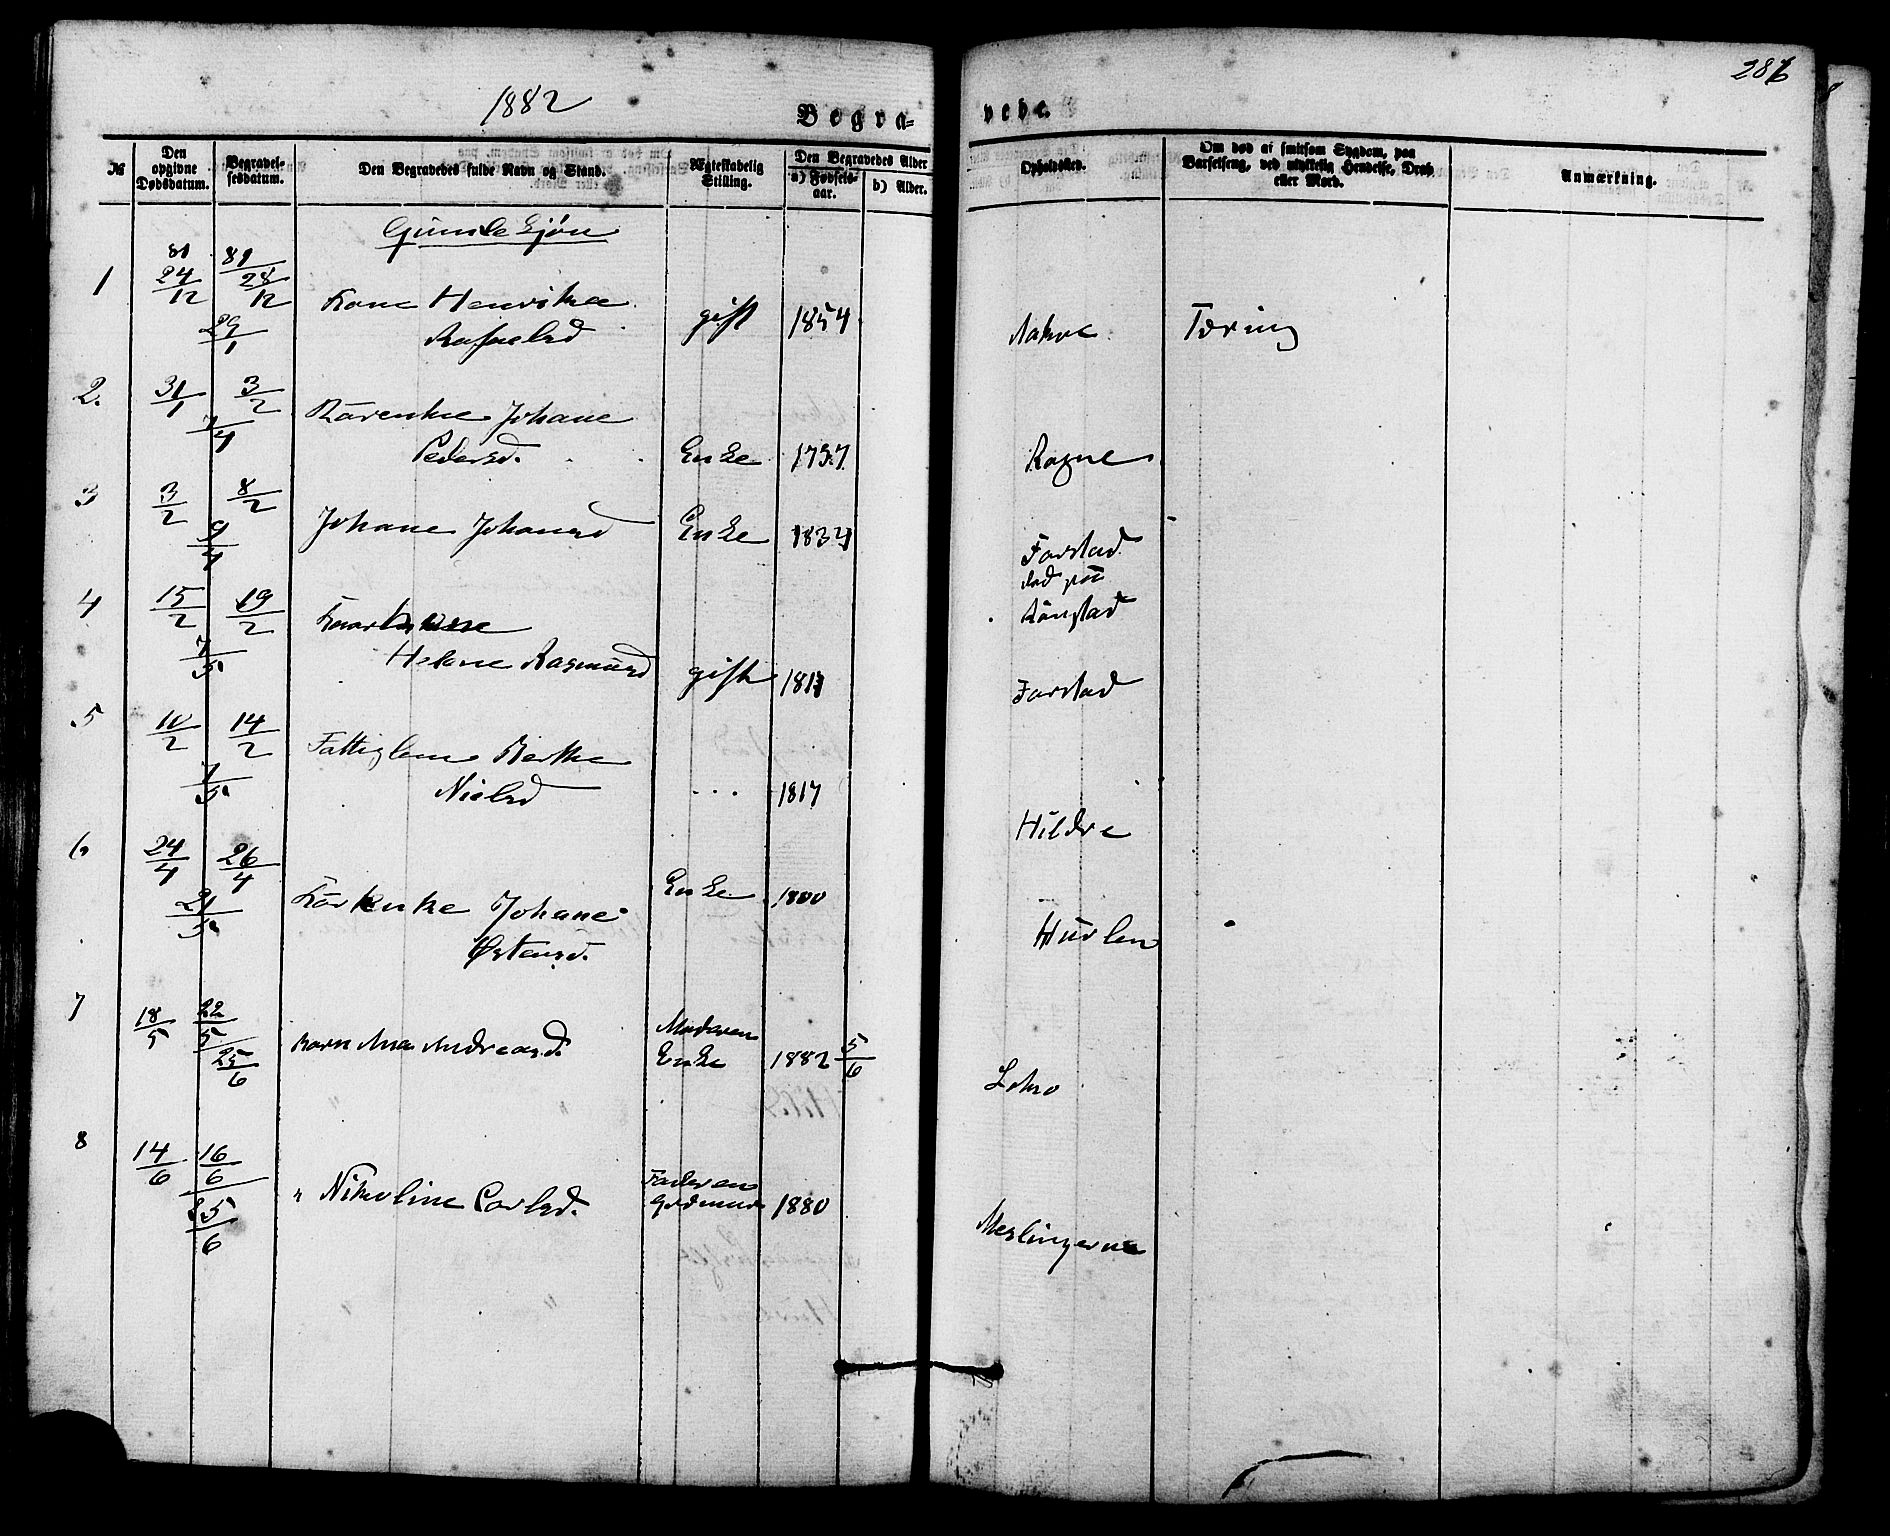 1882
Begra=
vede.
286
№
Den opgivne Dødsdatum.
Begravel-sesdatum.
Den Begravedes fulde Navn og Stand.
Ægteskabelig Stilling.
Den Begravedes Alder
a) Fødsels-aar.
b) Alder.
Opholdssted.
Om død af smitsom Sygdom, paa Barselseng, ved ulykkelig Hendelse, Drab eller Mord.
Anmærkning.
Qvindekjøn
1 81 24/12 81 28/12 29/1 Kone Henrikke
gift 1854 Aakre Tæring
2. 31/1 3/2 7/4 Karenke Johane
Pedersd. Enke 1797 Rogne
3 3/2 8/2 9/4 Johane Johansd Enke 1834 Farstad
død paa
Rønstad
4 15/2 19/2 7/5
Helene Rasmusd gift 1811 Farstad
5 10/2 14/2 7/5 Fattiglem Berthe
Nielsd ... 1817 Hildre
6 24/4 26/4 21/5 Karenke Johane
Østensd. Enke 1800 Hurlen
7 18/5 22/5 25/6 Barn Ana Andreasd. Moderen
Enke 1882 5/6 Lohro
8 14/6 16/6 25/6 " Nikoline Carlsd. Faderen
grdmand 1880